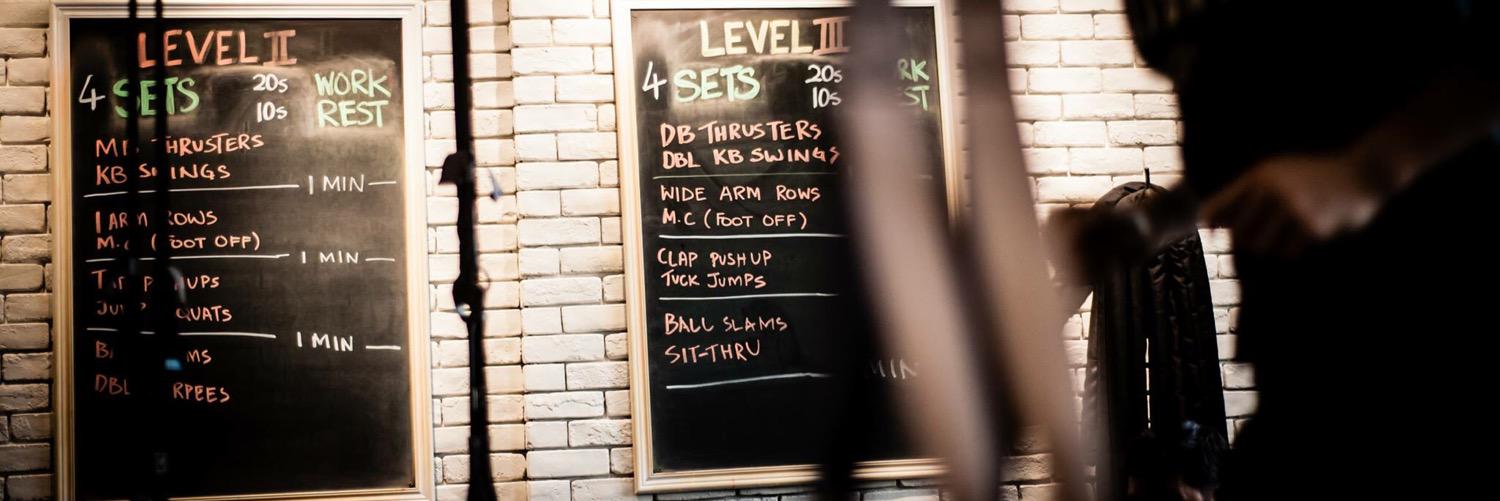 LEVEL II
4 SETS 20s WORK
10s REST
THRUSTERS
KB SWINGS
1 MIN
1 ARM ROWS
(FOOT OFF)
1 MIN
1 MIN
DBL
LEVEL III
4 SETS 20s
10s
DB THRUSTERS
DBL KB SWINGS
WIDE ARM ROWS
M.C (FOOT OFF)
CLAP PUSHUP
TUCK JUMPS
BALL SLAMS
SIT-THRU
MIN